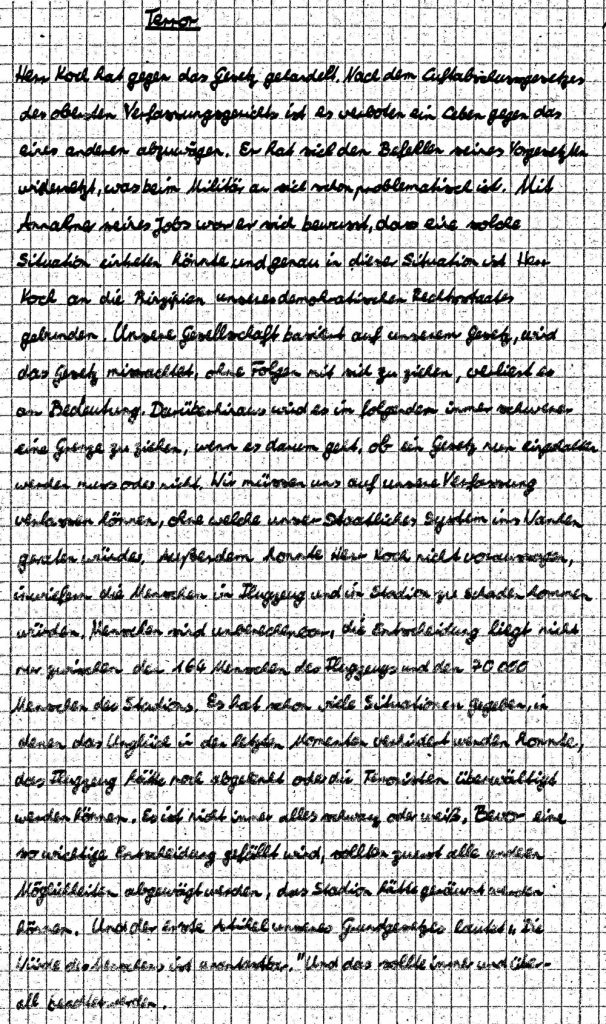 Terror
Herr Koch hat gegen das Gesetz gehandelt. Nach dem Luftabsicherungsgesetzes
des obersten Verfassungsgerichts ist es verboten ein Leben gegen das
eines anderen abzuwägen. Er hat sich den Befehlen seines Vorgesetzten
widersetzt, was beim Militär an sich schon problematisch ist. Mit
Annahme seines Jobs war er sich bewusst, dass eine solche
Situation eintreten könnte und genau in dieser Situation ist Herr
Koch an die Prinzipien unseres demokratischen Rechtsstaates
gebunden. Unsere Gesellschaft basiert auf unserem Gesetz, wird
das Gesetz missachtet, ohne Folgen mit sich zu ziehen, verliert es
an Bedeutung. Darüberhinaus wird es im folgenden immer schwerer
eine Grenze zu ziehen, wenn es darum geht, ob ein Gesetz nun eingehalten
werden muss oder nicht. Wir müssen uns auf unsere Verfassung
verlassen können, ohne welche unser staatliches System ins Wanken
geraten würde. Außerdem konnte Herr Koch nicht voraussagen,
inwiefern die Menschen im Flugzeug und im Stadion zu Schaden kommen
würden. Menschen sind unberechenbar, die Entscheidung liegt nicht
nur zwischen den 164 Menschen des Flugzeugs und den 70 000
Menschen des Stadions. Es hat schon viele Situationen gegeben, in
denen das Unglück in den letzten Momenten verhindert werden konnte,
das Flugzeug hätte noch abgelenkt oder die Terroristen überwältigt
werden können. Es ist nicht immer alles schwarz oder weiß. Bevor eine
so wichtige Entscheidung gefällt wird, sollten zuerst alle anderen
Möglichkeiten abgewägt werden, das Stadion hätte geräumt werden
können. Und der erste Artikel unseres Grundgesetzes lautet „Die
Würde des Menschens ist unantastbar." Und das sollte immer und über-
all beachtet werden.